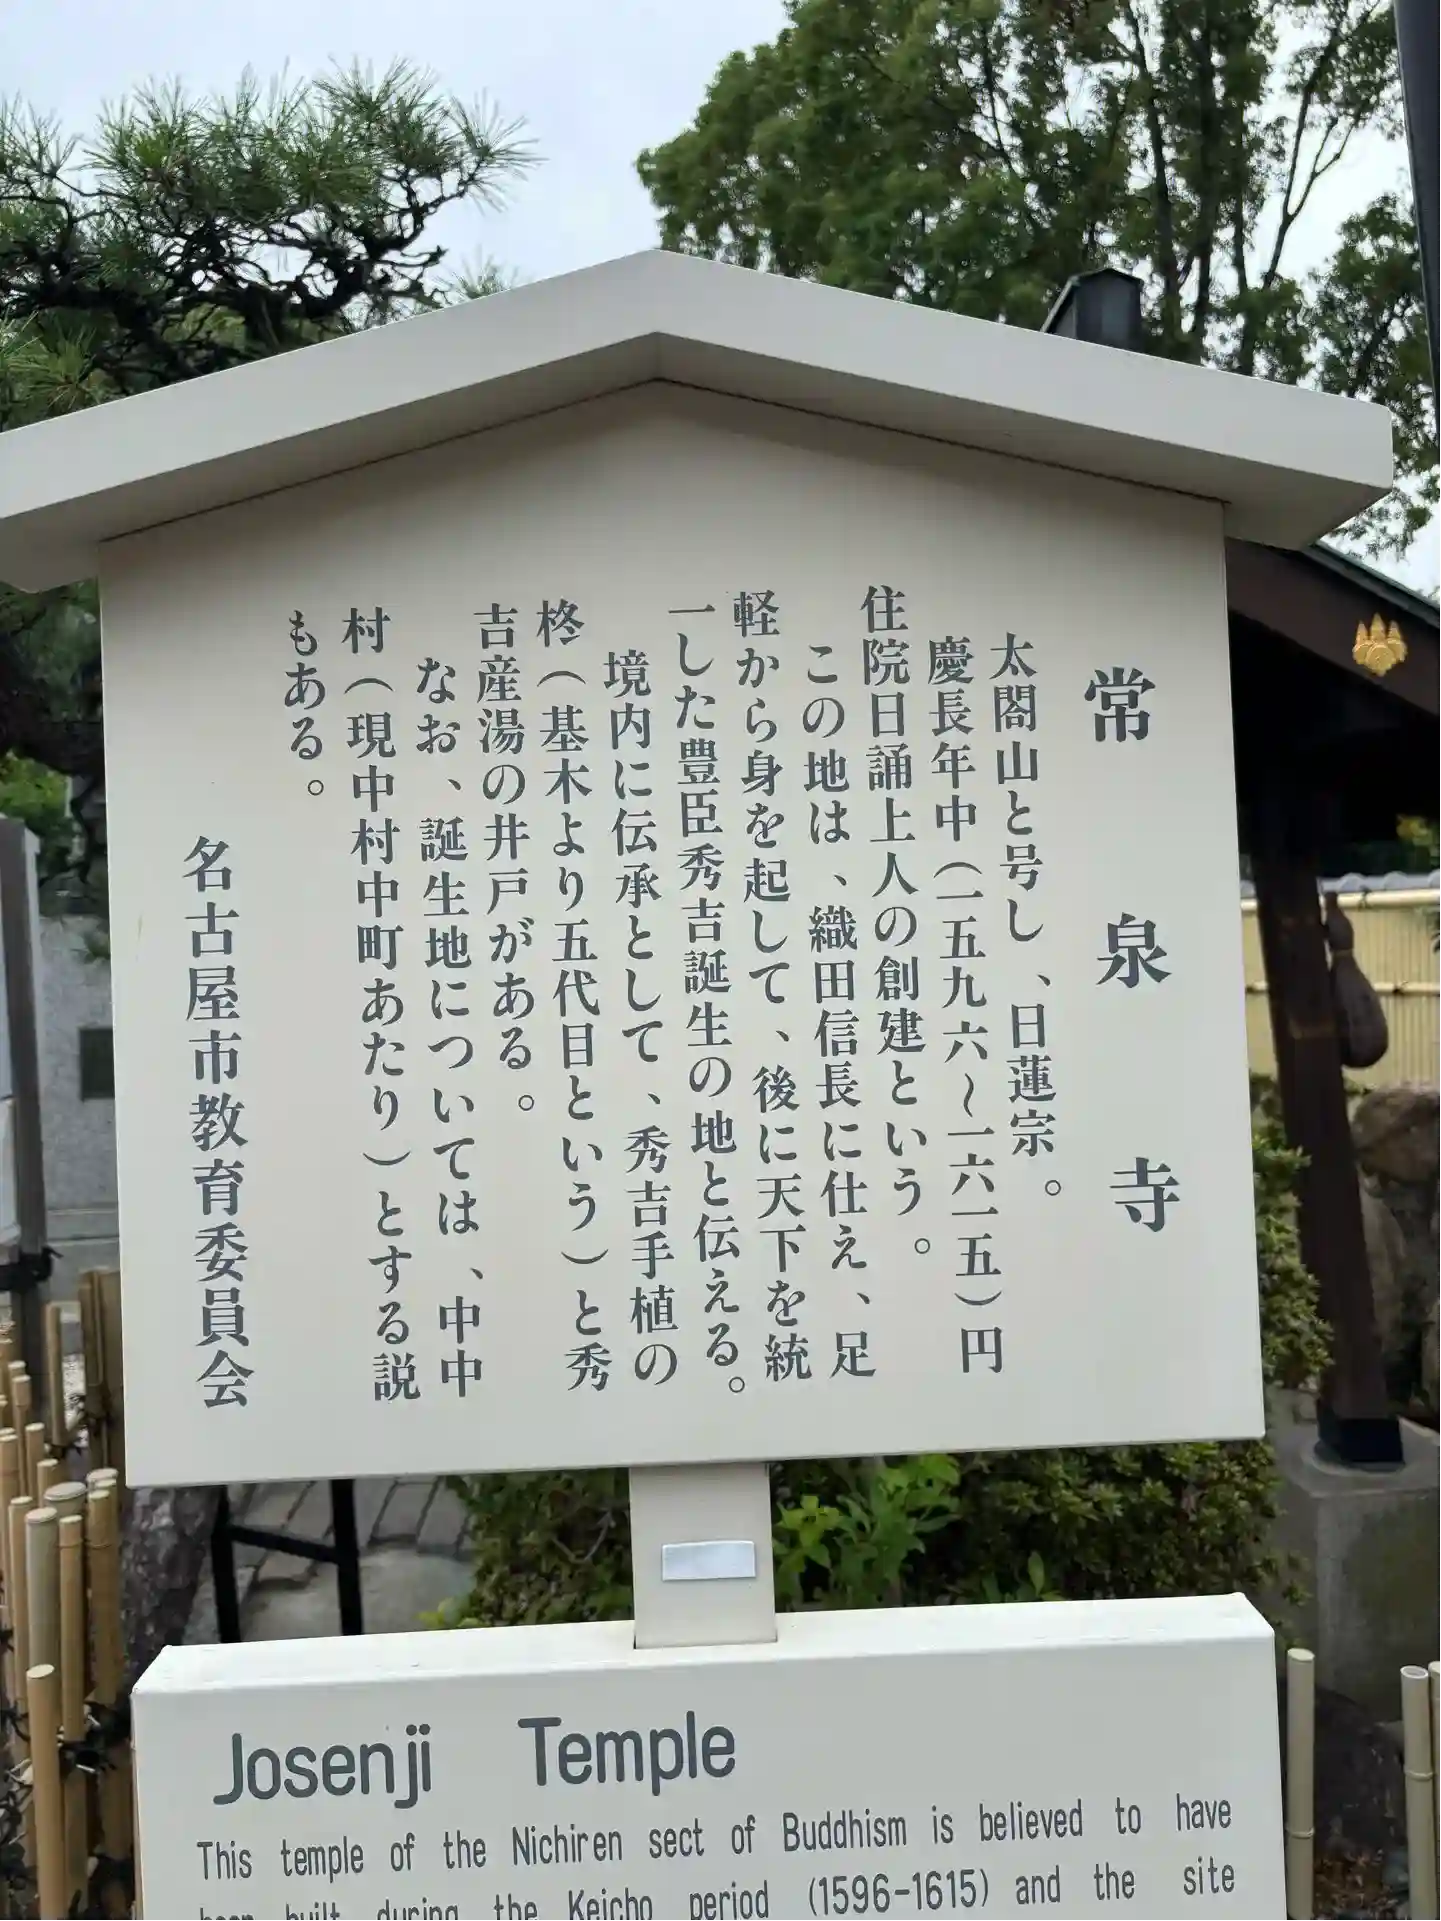 常泉寺
太閤山と号し、日蓮宗。
慶長年中（一五九六～一六一五）円
住院日誦上人の創建という。
この地は、織田信長に仕え、足
軽から身を起して、後に天下を統
一した豊臣秀吉誕生の地と伝える。
境内に伝承として、秀吉手植の
柊（基木より五代目という）と秀
吉産湯の井戸がある。
なお、誕生地については、中中
村（現中村中町あたり）とする説
もある。
名古屋市教育委員会
Josenji Temple
This temple of the Nichiren sect of Buddhism is believed to have
been built during the Keicho period (1596-1615) and the site